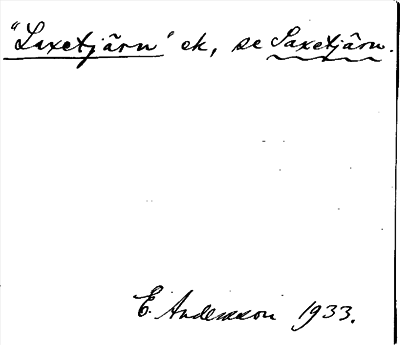 "Laxetjärn" ek, se Saxetjärn.
E. Andersson 1933.